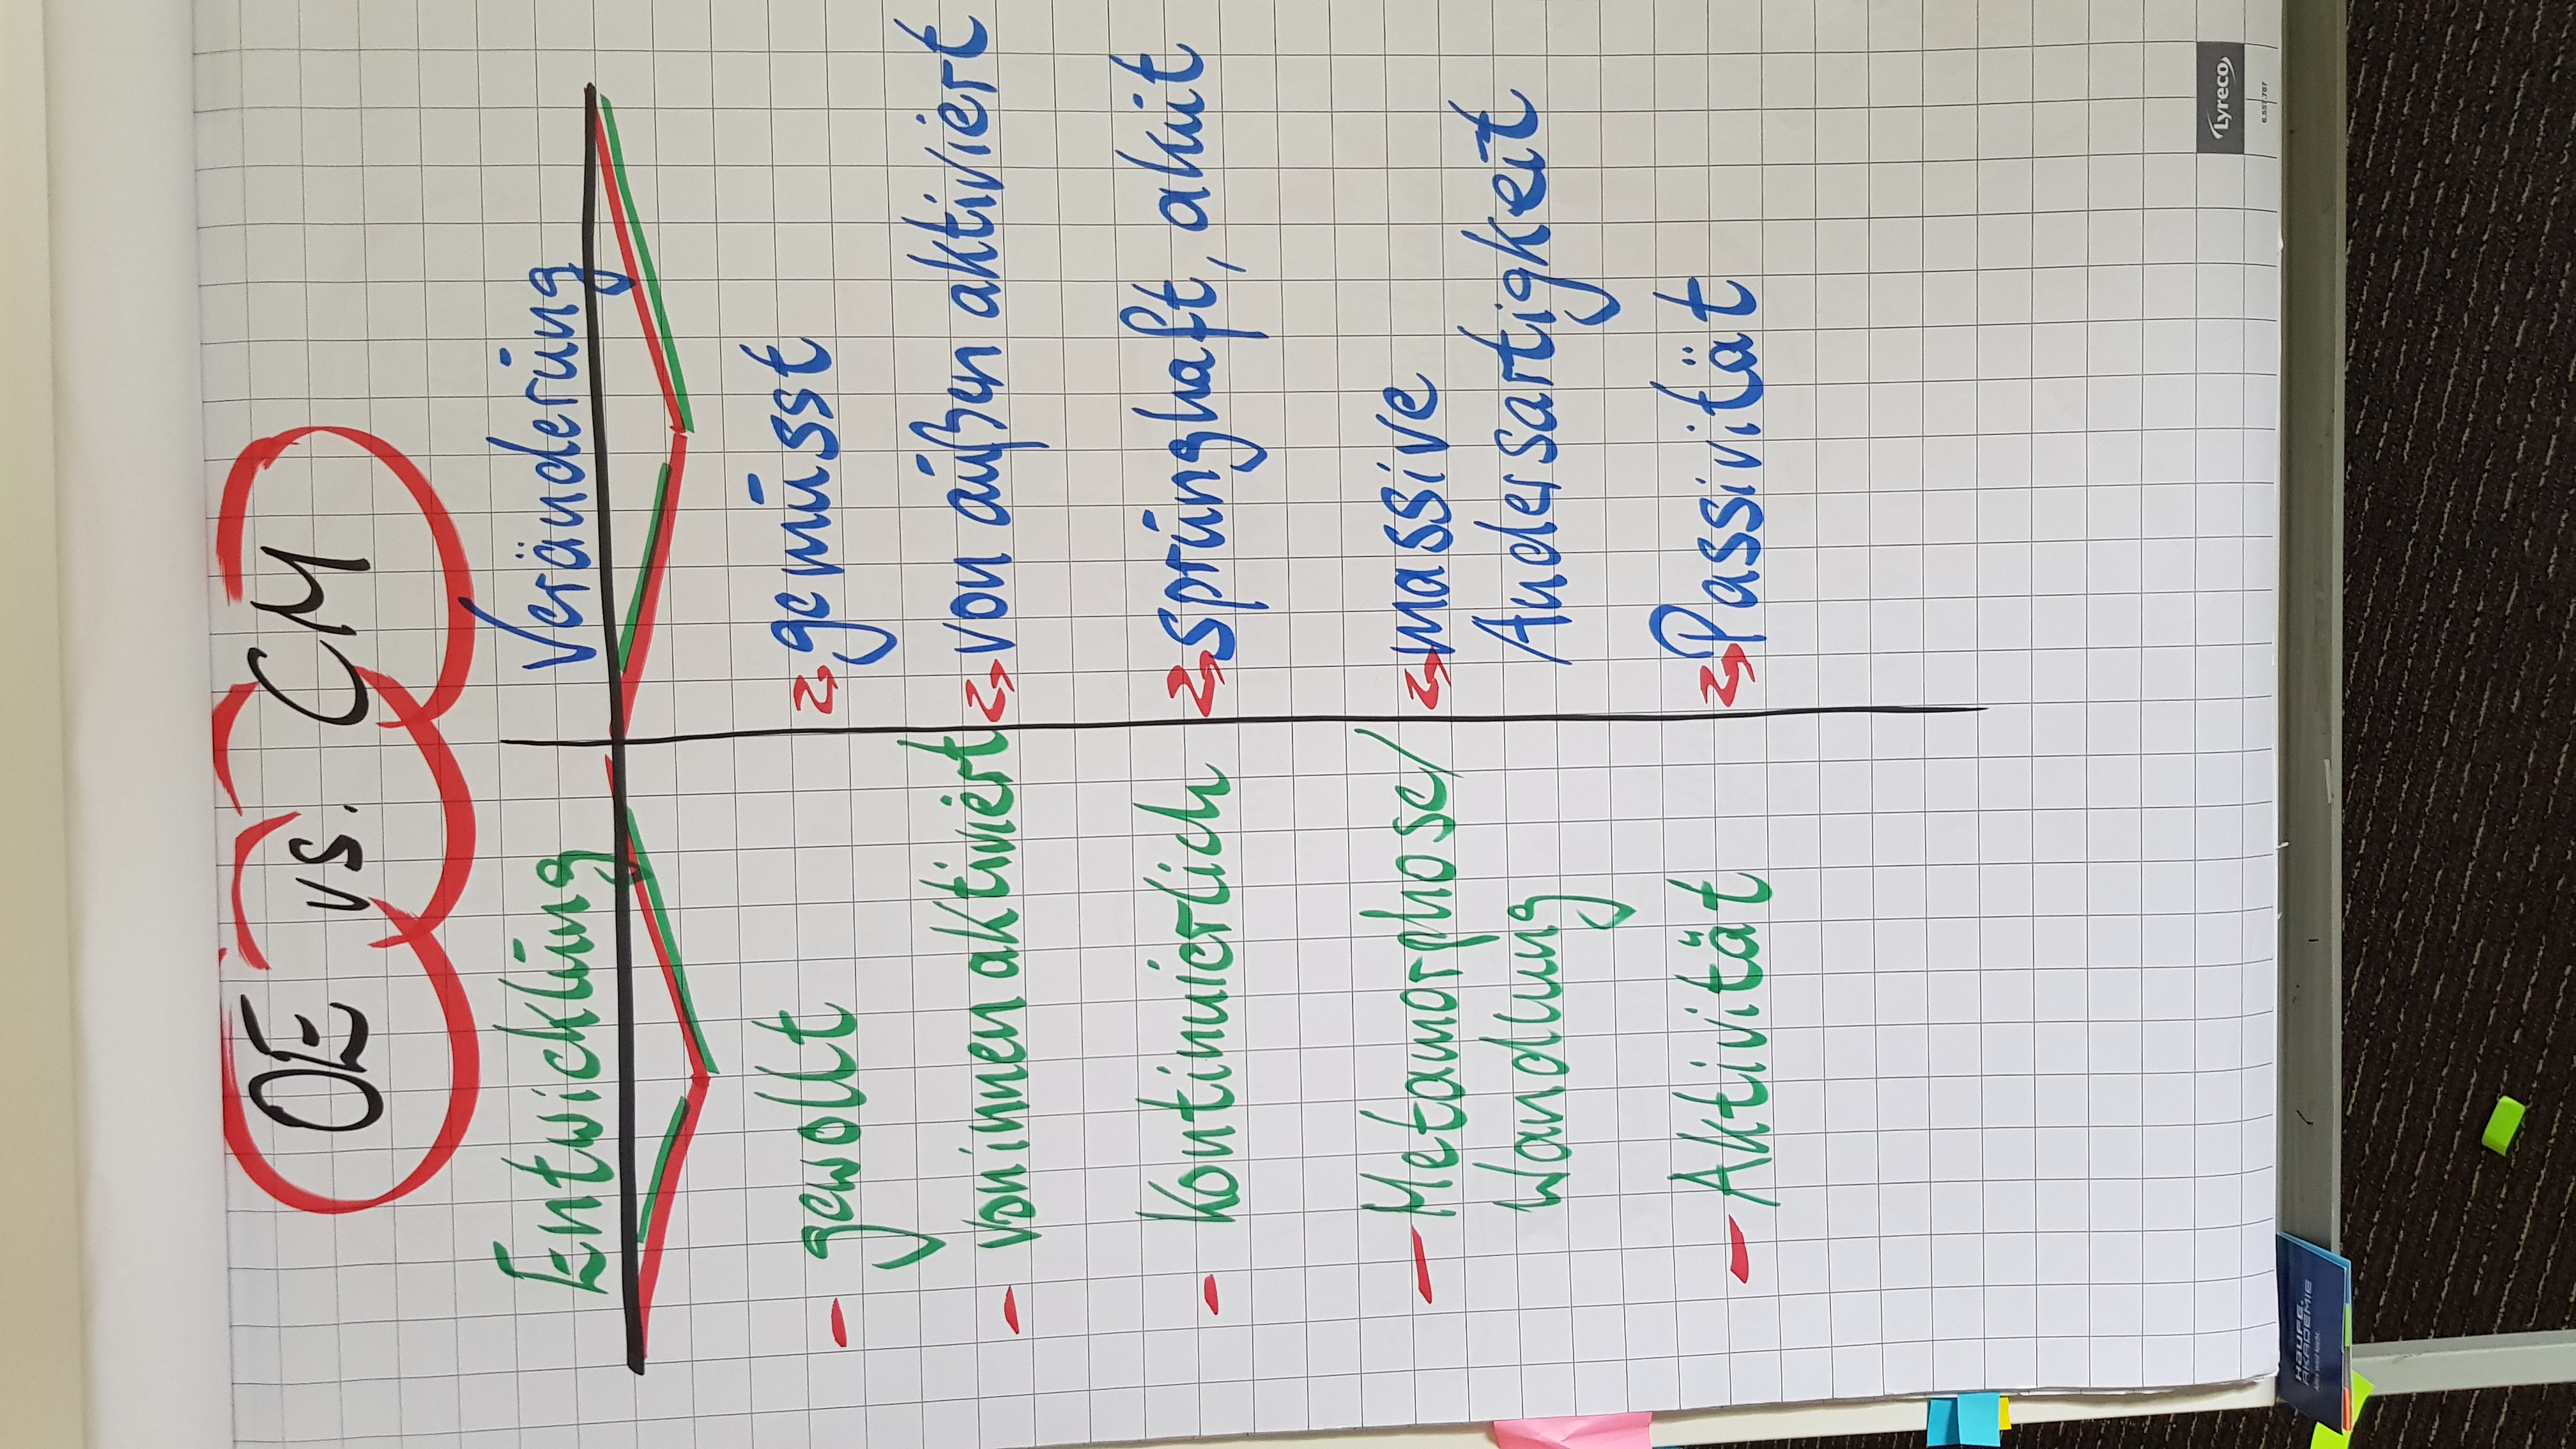 OE vs. CM
Entwicklung
Veränderung
- gewollt
gemusst
- von innen aktiviert
von außen aktiviert
- Kontinuierlich
sprunghaft, akut
- Metamorphose/
Wandlung
massive
Andersartigkeit
- Aktivität
Passivität
Lyreco
6.557.787
HAUFE.
AKADEMIE